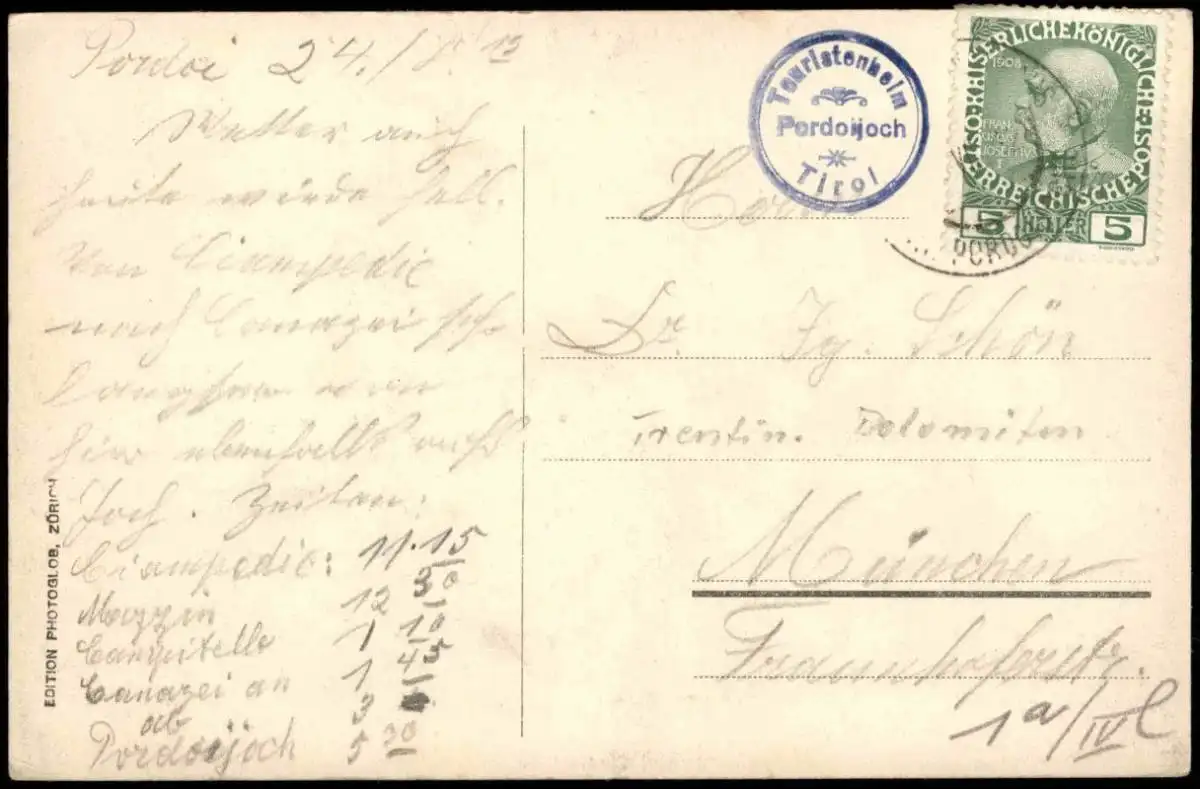 Pordoi 24./8. 13
Wetter auch
heute wurde hell.
Von Ciampedie
nach Canazei sehr
langsam von
hier ebenfalls aufs
Joch. Zeiten:
Ciampedie: 11.15
Mazzin 12 30
Campitello 1 10
Canazei an 1 45
ab 3
Pordoijoch 5 30
EDITION PHOTOGLOB, ZÜRICH
Touristenheim
Pordoijoch
Tirol
KAISERLICHEKÖNIGLICHE
ÖSTERREICHISCHE POST
1908
FRAN
CISCUS
JOSEPH
I
5 HELLER 5
Dr. Ig. Schön
Trentin. Dolomiten
München
Fraunhoferstr.
1a/IV l